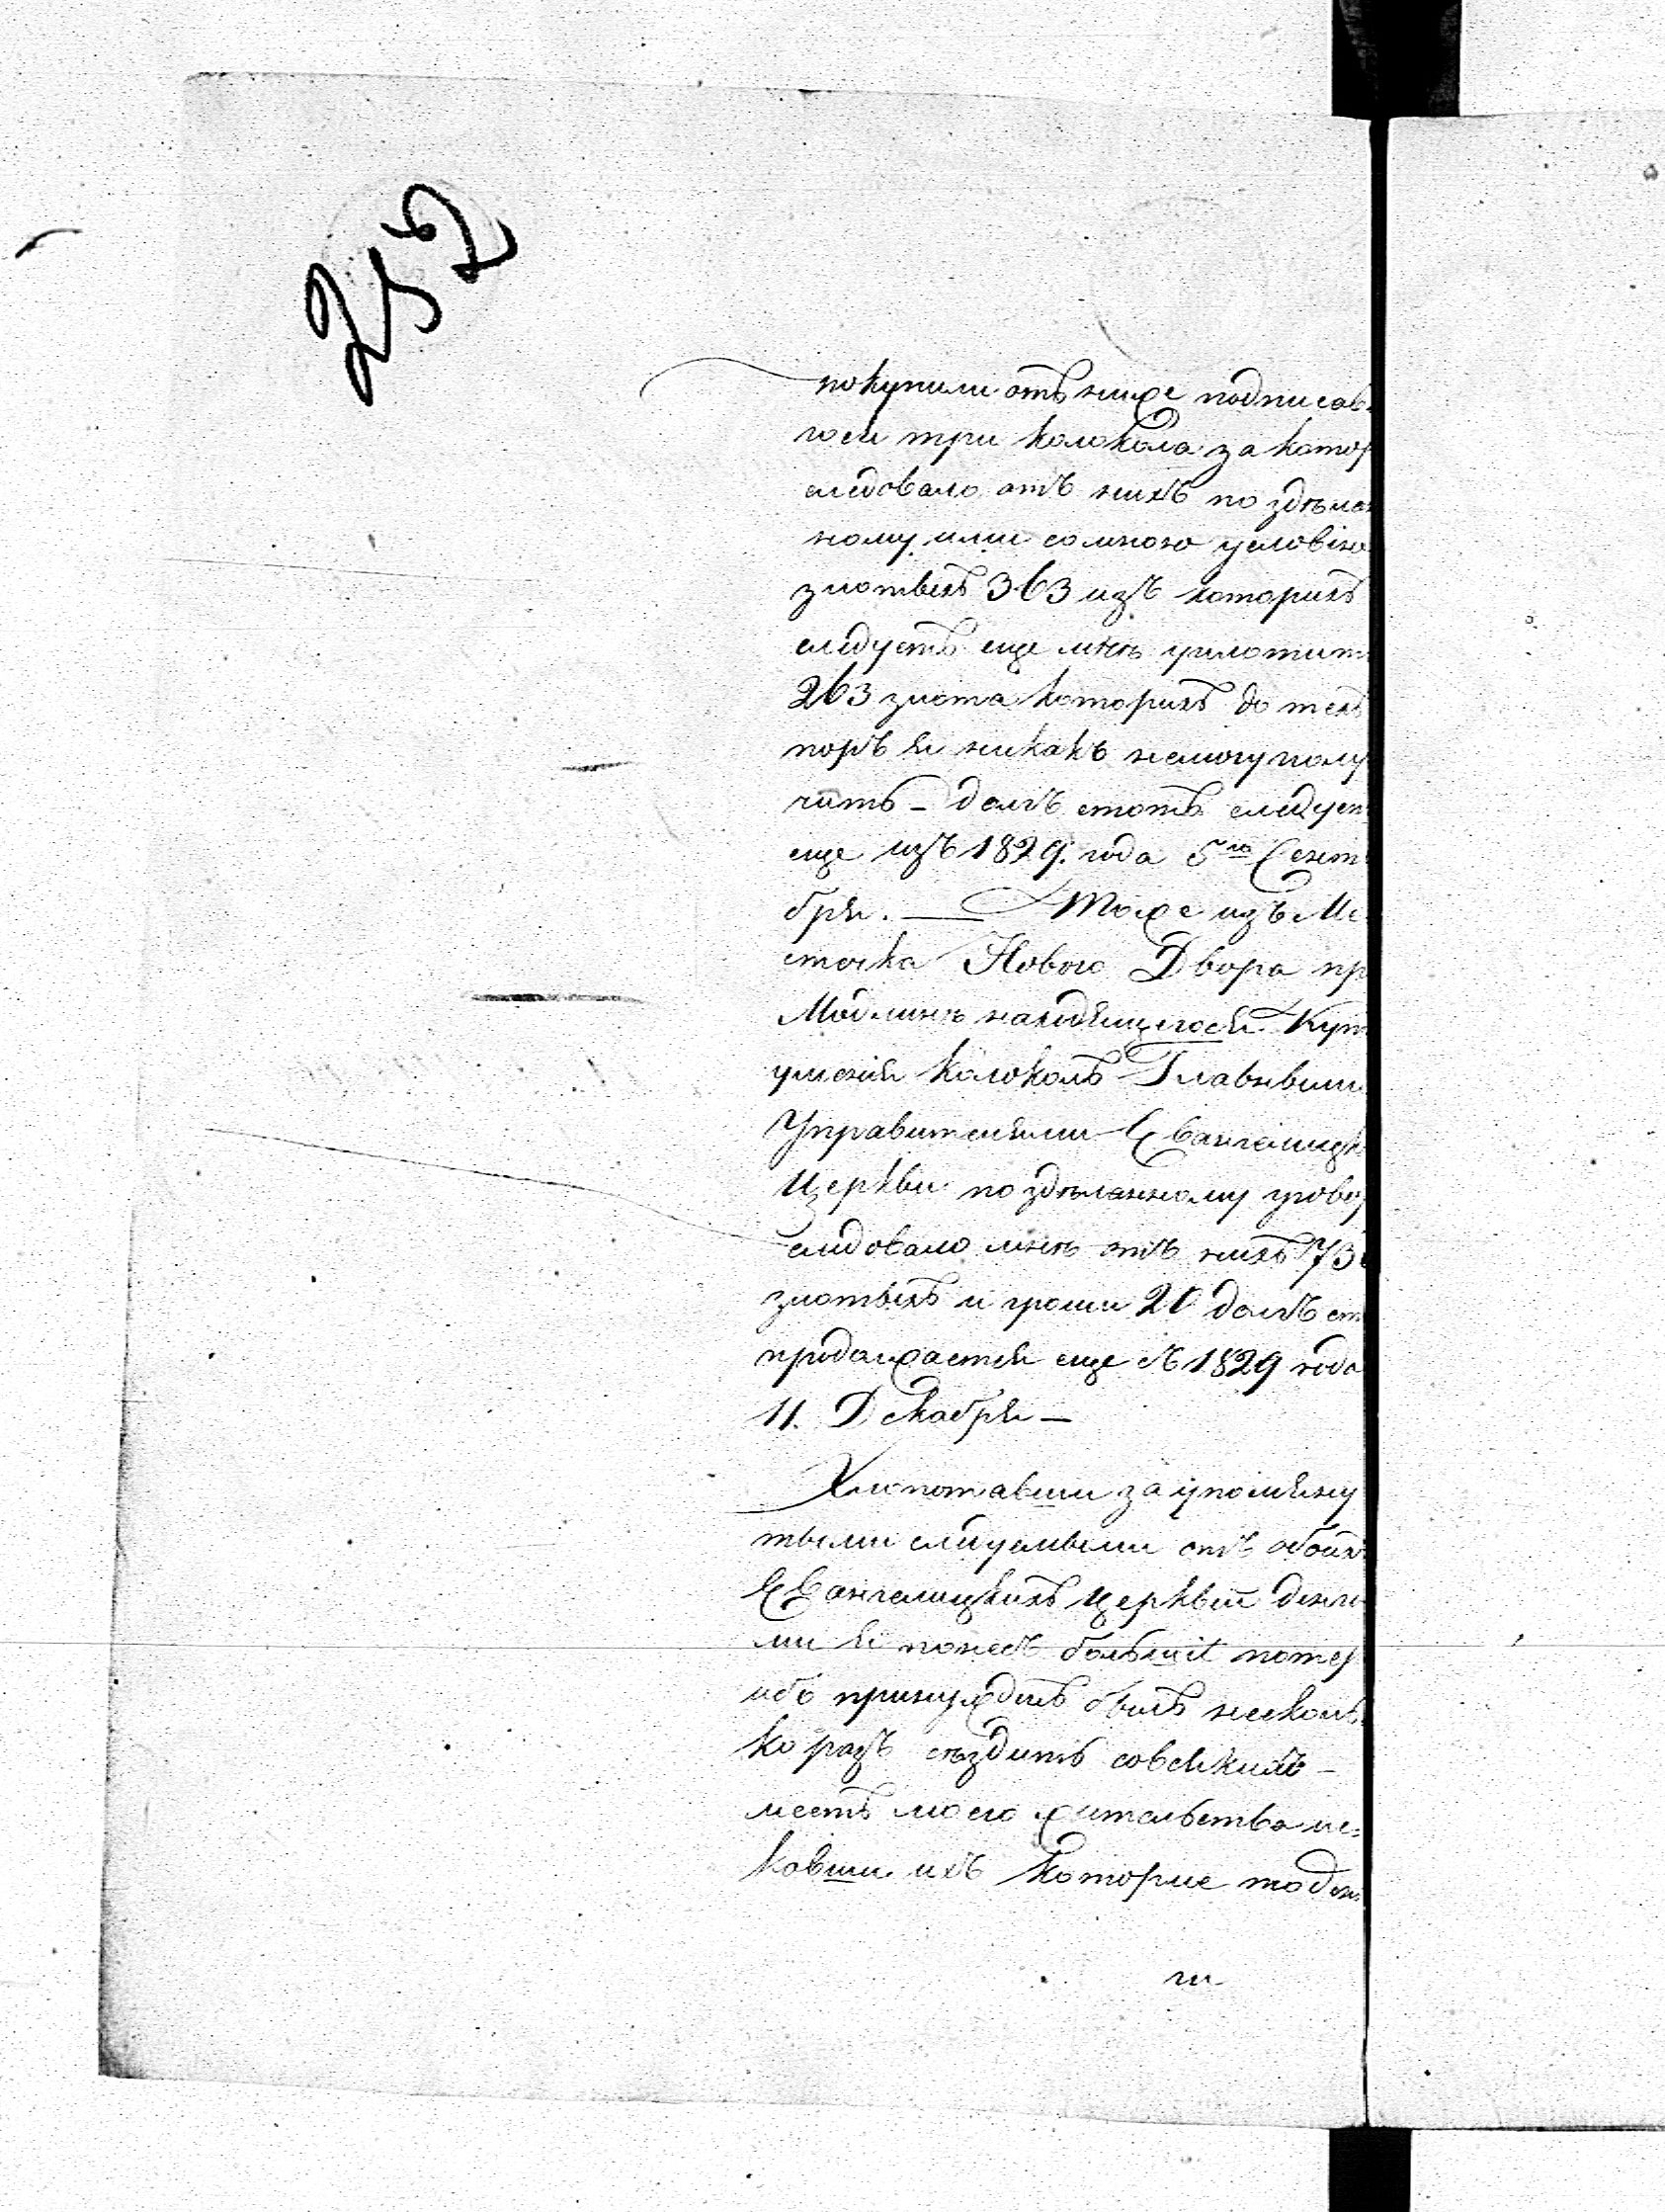 252
покупили отъ ниже подписав
госи три колокола за котор
следовало отъ нихъ по здѣла
ному ими со мною условію
злотыхъ 363 изъ которихъ
следуетъ еще мнѣ уплотит
263 злота которихъ до техъ
поръ я никакъ немогу полу
чить - долгъ етотъ следует
еще изъ 1829. года 5го Сент
бря. — Тоже изъ Ме
стечка Нового Двора пр
Модлинѣ находящегося Куп
колоколъ Главными
Управителями Евангелицк
Церкви по здѣланному угово
следовало мнѣ отъ нихъ 73
злотыхъ и гроши 20 долгъ ет
продолжается еще съ 1829 года
11. Декабря —
Хлопотавши за упомяну
тыми следуемыми отъ обоихъ
Евангелицкихъ Церквей денга
ми я понесъ потер
ибо принужденъ былъ несколь
ко разъ ездить
местъ моего жительства ис=
кавши ихъ Которие то ден
ги